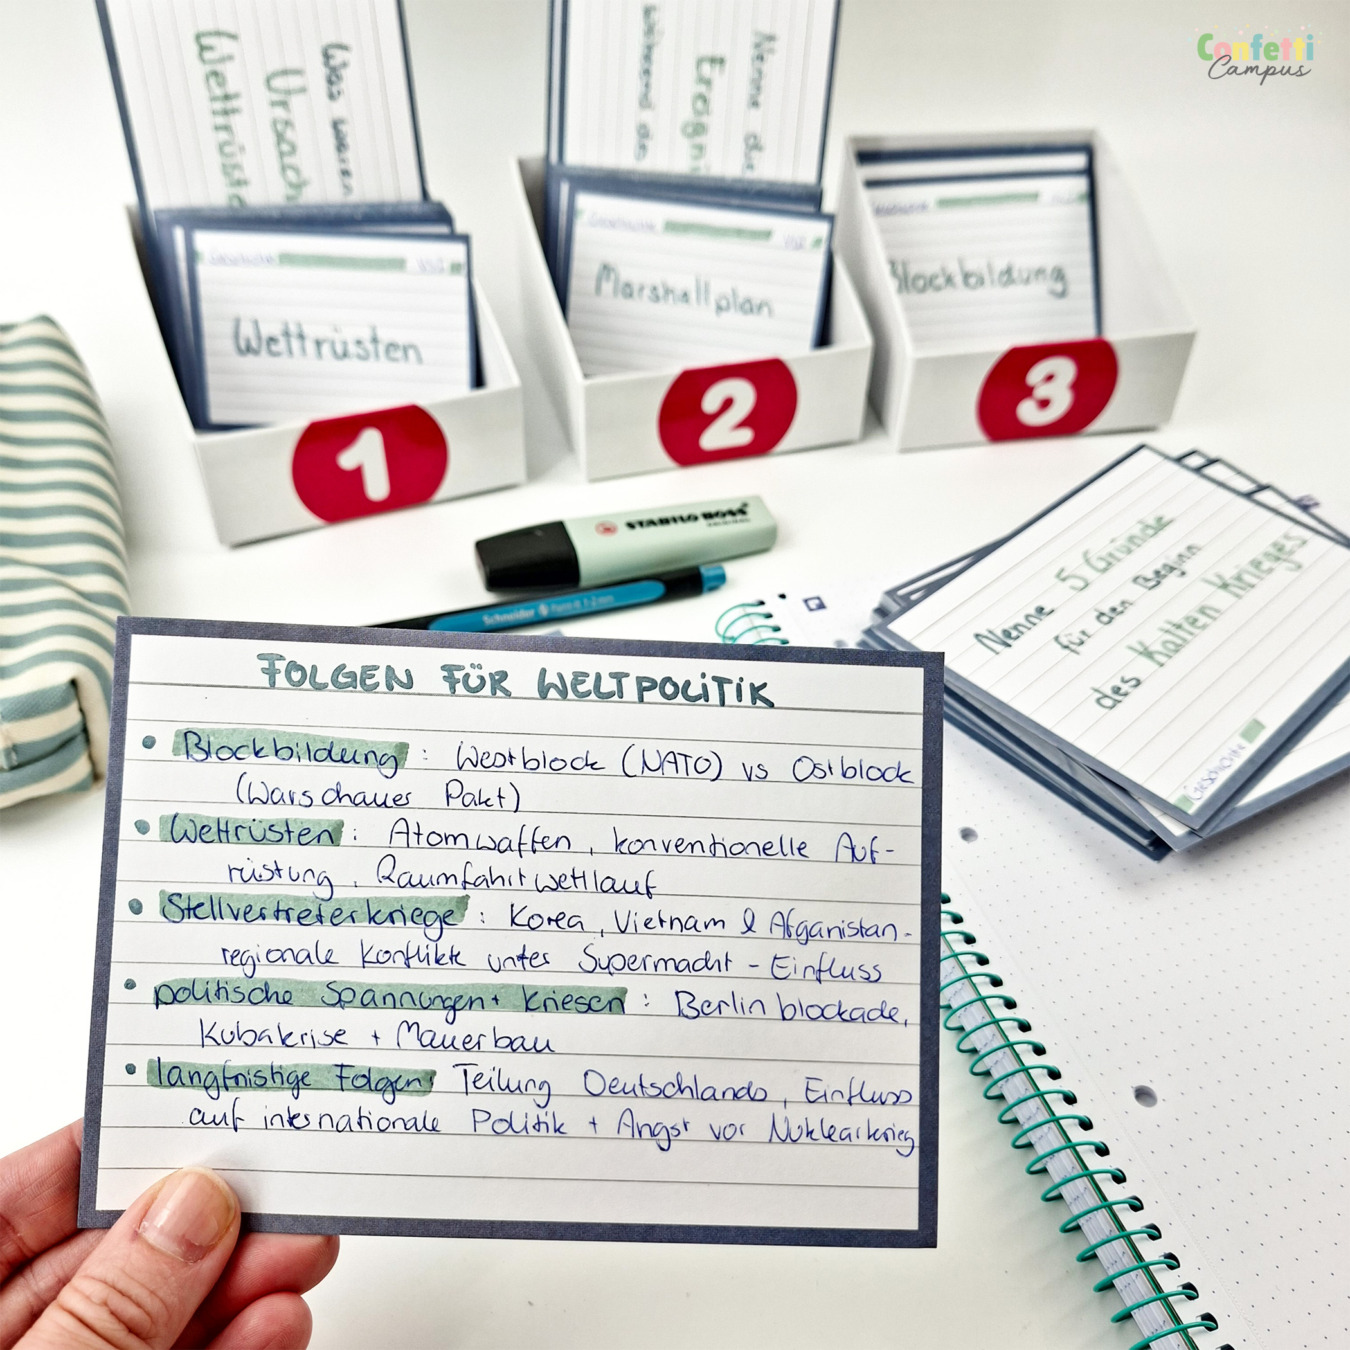 Confetti
Campus
Was waren
Ursach
Wettrüste
Nenne die
Ereigni
während de
Geschichte
Wettrüsten
1
Geschichte
Marshallplan
2
Blockbildung
3
STABILO BOSS
ORIGINAL
Schneider
Nenne 5 Gründe
für den Beginn
des Kalten Krieges
Geschichte
FOLGEN FÜR WELTPOLITIK
• Blockbildung : Westblock (NATO) vs Ostblock
(Warschauer Pakt)
• Wettrüsten : Atomwaffen, konventionelle Auf-
rüstung, Raumfahrtwettlauf
• Stellvertreterkriege : Korea, Vietnam & Afganistan -
regionale Konflikte unter Supermacht - Einfluss
• politische Spannungen + kriesen : Berlinblockade,
Kubakrise + Mauerbau
• langfristige Folgen: Teilung Deutschlands, Einfluss
auf internationale Politik + Angst vor Nuklearkrieg